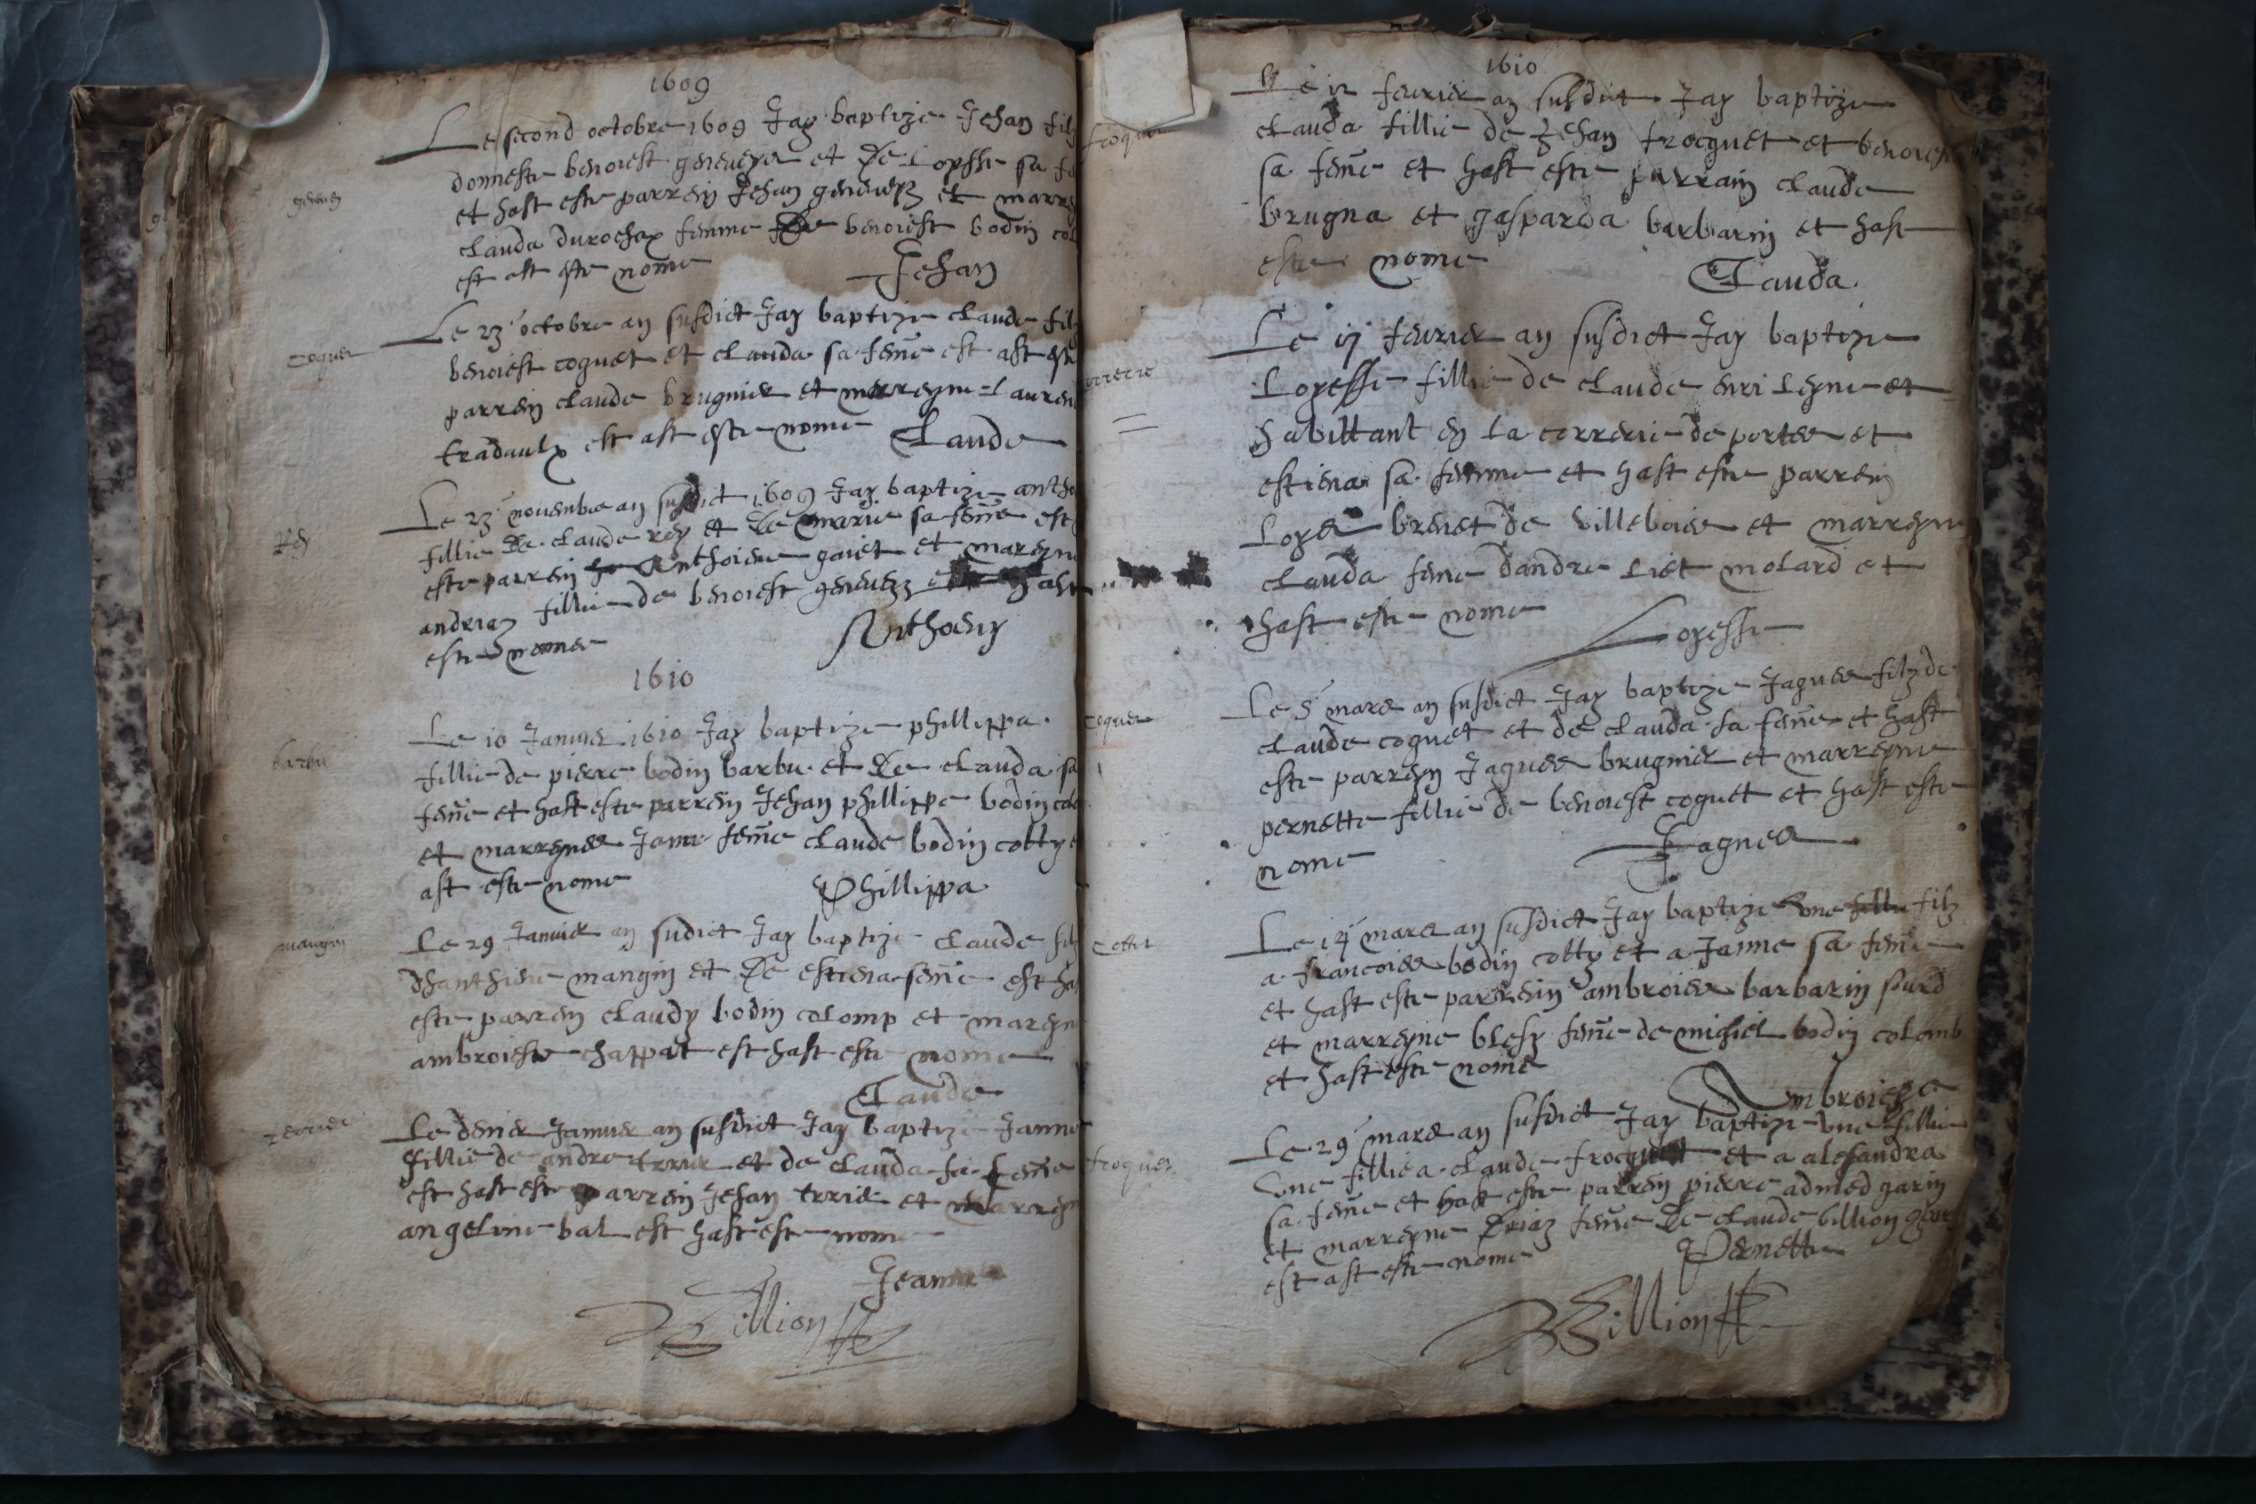 1609
Le second octobre 1609 Jay baptize Jehan filz
donneste benoiest geneveys et de Lopsse sa
geneve
et hast este parrein Jehan genevez et marre
clauda durochax femme de benoiest bodin col
est ast este nome Jehan
Le 23 octobre an susdict Jay baptize claude filz
coquet
benoiest coquet et clauda sa feme est ast este
parrein claude brugnier et marreyne Lauren
tradaulx est ast este nome Claude
Le 23 novembre an susdict 1609 Jay baptize antho
Rey
fillie de claude rey et de marie sa feme est
este parrein Anthoiene gaiet et mareyne
andriaz fillie de benoiest genevez hast
este nomee Anthoeny
1610
Le 10 Janvier 1610 Jay baptize phillippa
barbu
fillie de pierre bodin barbu et de clauda sa
feme et hast este parrein Jehan phillippe bodin colo
et marreynee Jane feme claude bodin cotty e
ast este nome Phillippa
mangin
Le 29 Janvier an sudict Jay baptize claude filz
dhanthiene mangin et de estiena feme est has
este parrein claudy bodin colomp et mareyne
ambroiese chappat est hast este nome
Claude
terrier
Le denier Janvier an susdict Jay baptize Janne
fillie de andre terrier et de clauda sa feme
est hast este parrein Jehan terrier et marreyne
angeline bal est hast este nome
Jeanne
Billion
1610
Le 12 fevrier an susdict Jay baptize
froquet
clauda fillie de Jehan frocquet et benoieste
sa feme et hast este parrain claude
brugna et gasparda barbarin et hast
este nome Clauda
Le 17 fevrier an susdict Jay baptize
Loyesse fillie de claude enri Leyne et
correrie
habittant en la correrie de portes et
estiena sa femme et hast este parrein
Loyes brenet de villeboies et marreyne
clauda feme dandre Liet molard et
hast este nome Loyesse
Le 5 mars an susdict Jay baptize Jaques filz de
coquet
claude coquet et de clauda sa feme et hast
este parreyn Jaques brugnier et marreyne
pernette fillie de benoiest coquet et hast este
nome Jaques
Le 14 mars an susdict Jay baptize une fillie filz
cottet
a francoies bodin cotty et a Janne sa feme
et hast este parrein ambroies barbarin sourd
et marreyne blesy feme de michiel bodin colomb
et hast este nome Ambroiese
Le 29 mars an susdict Jay baptize une fillie
froquet
une fillie a claude frocquet et a alesandra
sa feme et hast este parrein pierre admed garin
et marreyne feme de claude billion
est ast este nome Pernette
Billion